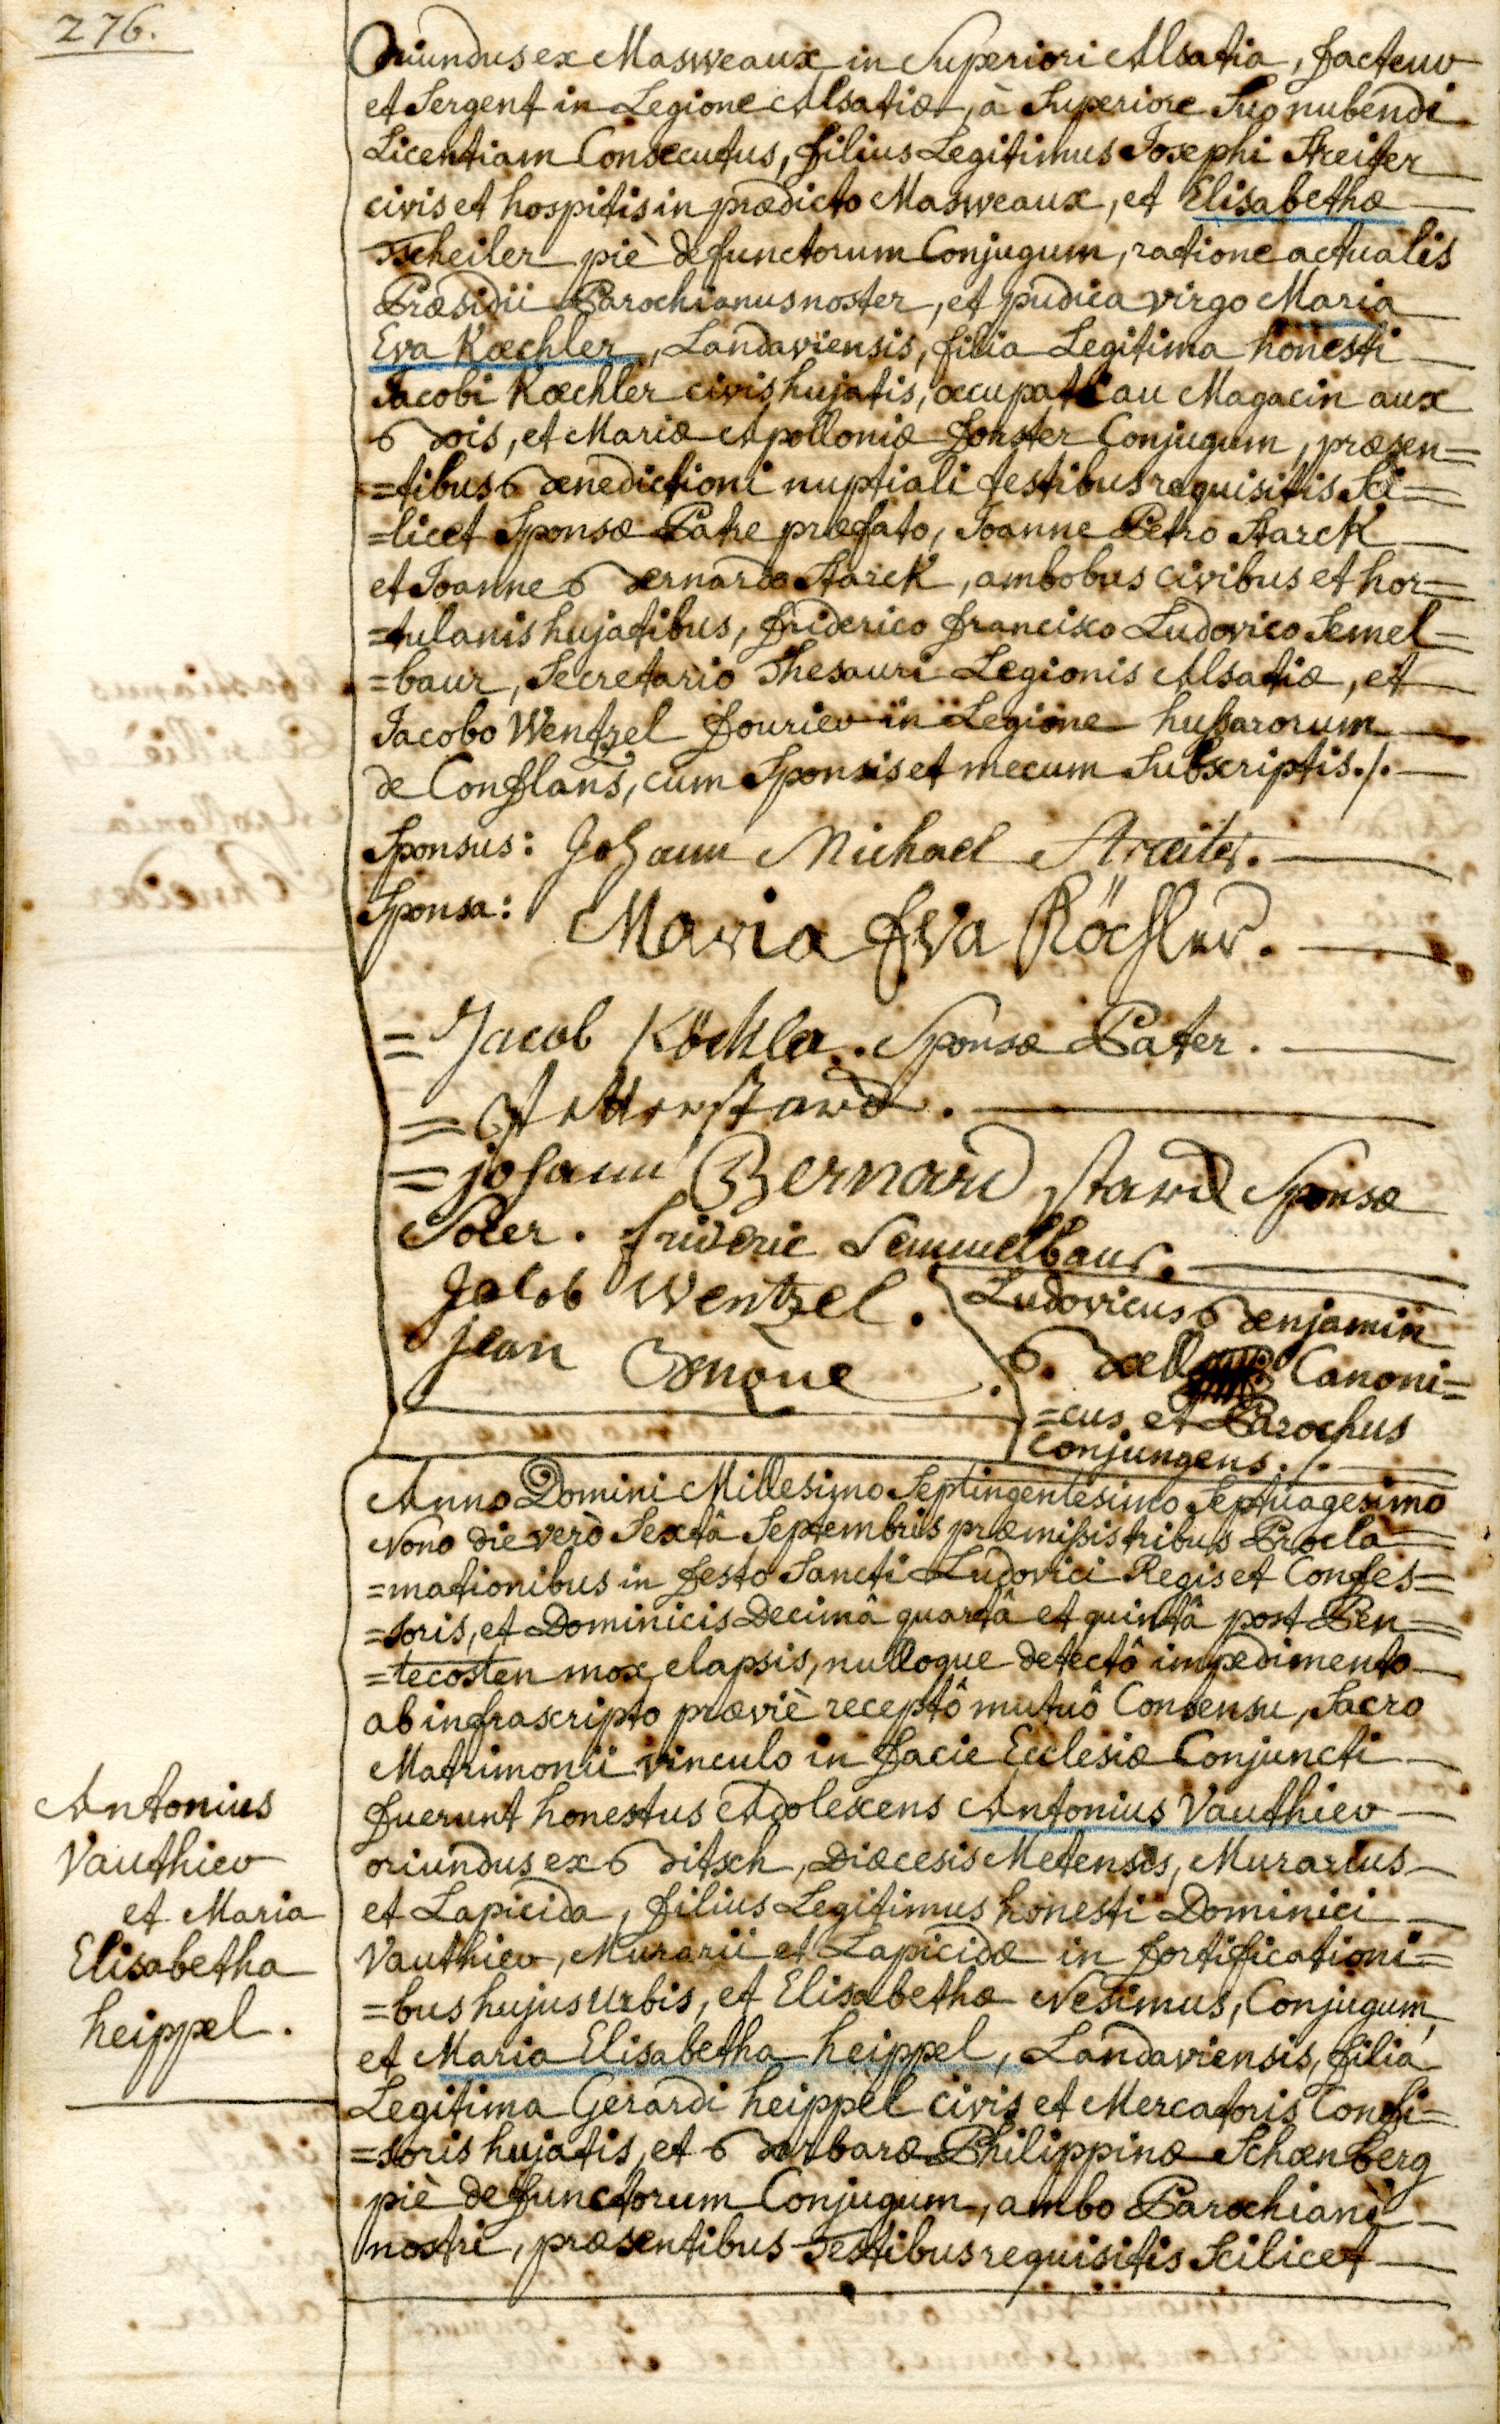 276.
Oriundus ex Masweaux in Superiori Alsatia, facteur
et Sergent in Legione Alsatiæ, à Superiore Suo nubendi
Licentiam Consecutus, filius Legitimus Josephi Streiter
civis et hospitis in prædicto Masweaux, et Elisabethæ
Tscheiler piè defunctorum Conjugum, ratione actualis
Præsidii Parochianus noster, et pudica virgo Maria
Eva Kœchler, Landaviensis, filia Legitima honesti
Jacobi Kœchler civis hujatis, occupati au Magacin aux
Bois, et Mariæ Apolloniæ forster Conjugum, præsen=
=tibus Benedictioni nuptiali testibus requisitis Sci=
=licet Sponsæ Patre præfato, Joanne Petro Starck
et Joanne Bernardo Starck, ambobus civibus et hor=
=tulanis hujatibus, friderico francisco Ludovico Semel=
=baur, Secretario Thesauri Legionis Alsatiæ, et
Jacobo Wentzel fourier in Legione hussarorum
de Conflans, cum Sponsis et mecum Subscriptis./.
Sponsus: Johann Michael Streiter.
Sponsa: Maria Eva Köchler.
= Jacob Köchler. Sponsæ Pater.
=
= johann Bernard starck Sponsæ
Socer. frideric Semmelbaur.
Jacob Wentzel.
Jean
Ludovicus Benjamin
B. Canoni=
=cus et Parochus
Conjungens./.
Anno Domini Millesimo Septingentesimo Septuagesimo
Nono die verò Sextâ Septembris præmissis tribus Procla=
=mationibus in festo Sancti Ludovici Regis et Confes=
=soris, et Dominicis Decimâ quartâ et quintâ post Pen=
=tecosten mox elapsis, nulloque detectô impedimento
ab infrascripto præviè receptô mutuô Consensu, Sacro
Matrimonii vinculo in facie Ecclesiæ Conjuncti
fuerunt honestus Adolescens Antonius Vauthier
oriundus ex Bitsch, Diœcesis Metensis, Murarius
et Lapicida, filius Legitimus honesti Dominici
Vauthier, Murarii et Lapicidæ in fortificationi=
=bus hujus Urbis, et Elisabethæ Nesimus, Conjugum,
et Maria Elisabetha heippel, Landaviensis, filia
Legitima Gerardi heippel civis et Mercatoris Confi=
=soris hujatis, et Barbaræ Philippinæ Schœnberg
piè defunctorum Conjugum, ambo Parochiani
nostri, præsentibus Testibus requisitis Scilicet
Antonius
Vauthier
et Maria
Elisabetha
heippel.